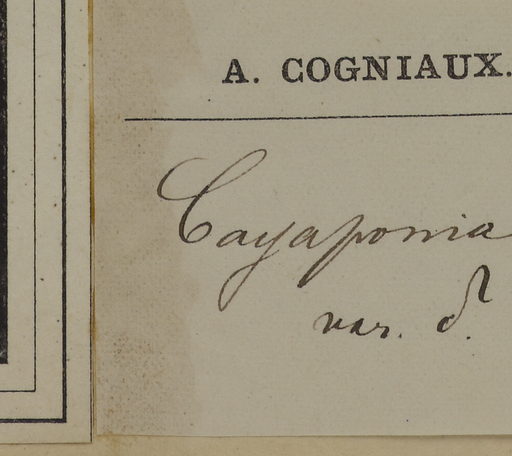 A. COGNIAUX.
Cayaponia
var. δ.